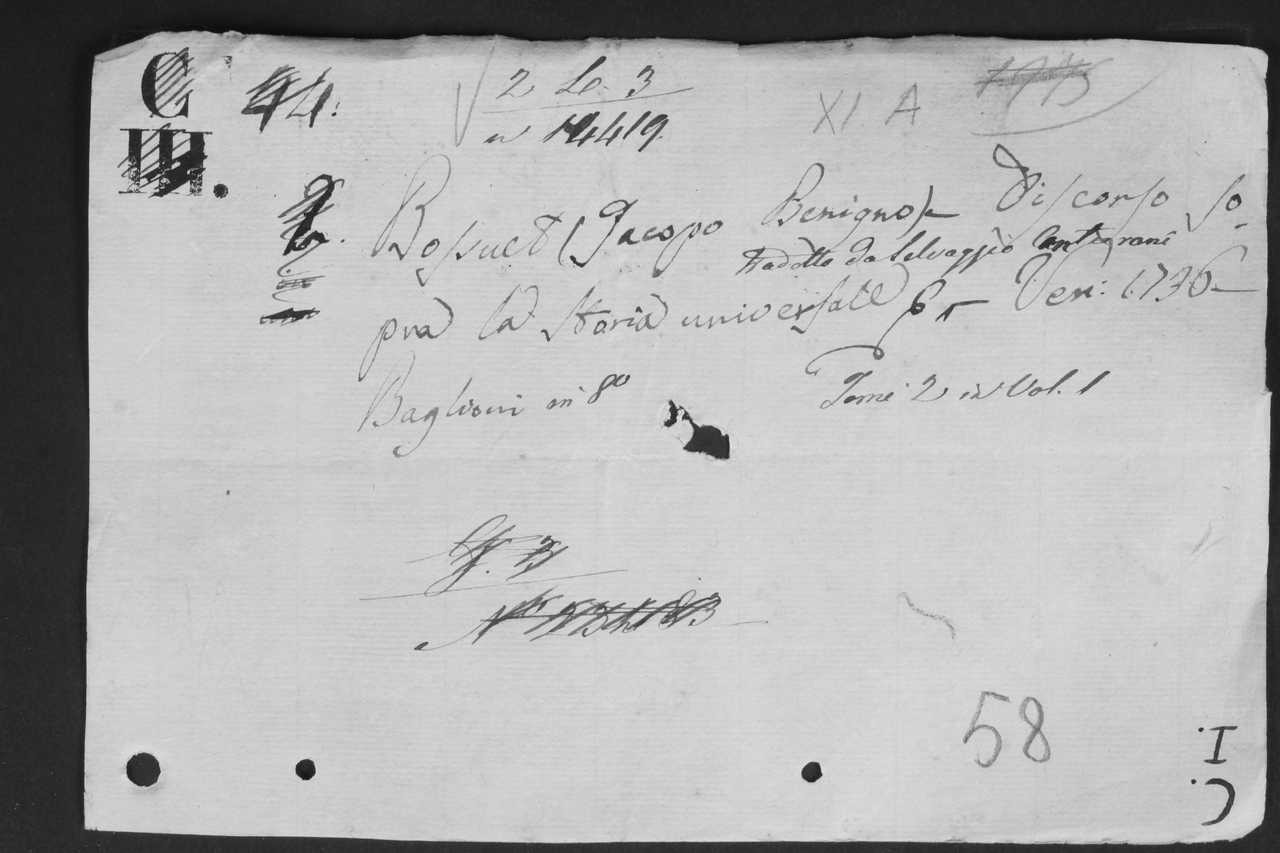 C 44. 2 Le. 3 XI A
III. n 14419
2. Bossuet (Jacopo Benigno) Discorso so-
tradotto da Selvaggio Canturani
pra la Storia universale Ven: 1736
Baglioni in 8º Tomi 2 in Vol. 1
58
I.
C